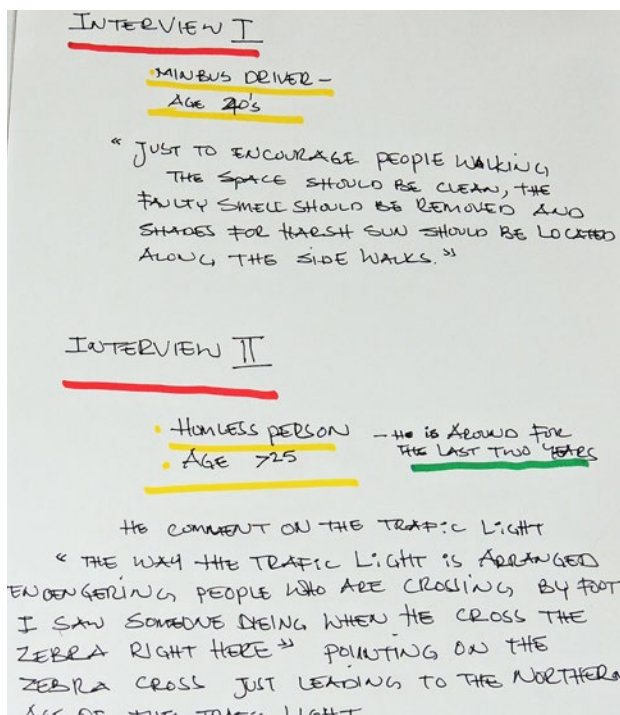 INTERVIEW I
• MINBUS DRIVER –
AGE 40's
"JUST TO ENCOURAGE PEOPLE WALKING
THE SPACE SHOULD BE CLEAN, THE
FAULTY SMELL SHOULD BE REMOVED AND
SHADES FOR HARSH SUN SHOULD BE LOCATED
ALONG THE SIDE WALKS."
INTERVIEW II
• HOMLESS PERSON – HE IS AROUND FOR
• AGE >25 THE LAST TWO YEARS
HE COMMENT ON THE TRAFIC LIGHT
"THE WAY THE TRAFIC LIGHT IS ARRANGED
ENDENGERING PEOPLE WHO ARE CROSSING BY FOOT
I SAW SOMEONE DEING WHEN HE CROSS THE
ZEBRA RIGHT HERE" POINTING ON THE
ZEBRA CROSS JUST LEADING TO THE NORTHERN
OF THE TRAFIC LIGHT